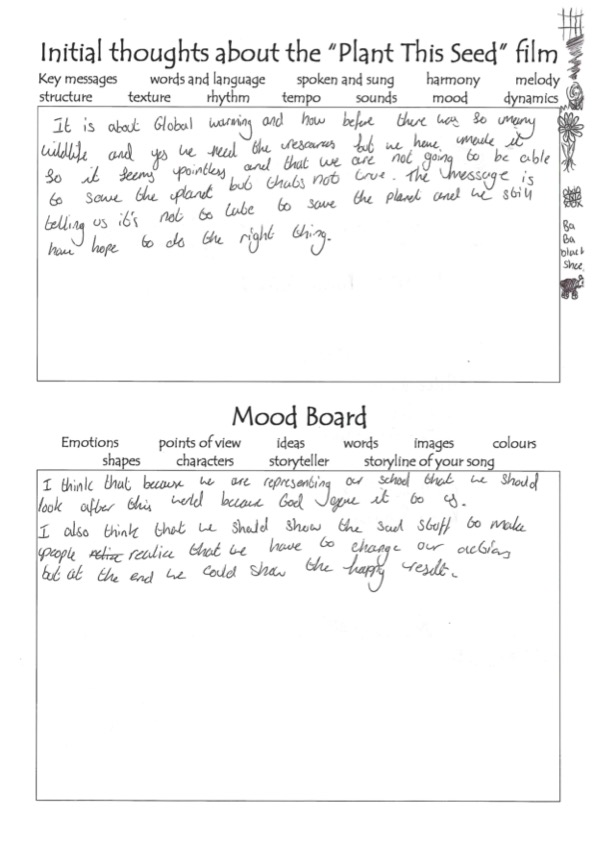 Initial thoughts about the "Plant This Seed" film
Key messages words and language spoken and sung harmony melody
structure texture rhythm tempo sounds mood dynamics
It is about Global warming and how before there was so many
wildlife and yes we need the resources but we have made it
so it seems pointless and that we are not going to be able
to save the planet but thats not true. The message is
telling us it's not to late to save the planet and we still
have hope to do the right thing.
Ba
Ba
black
Shee
Mood Board
Emotions points of view ideas words images colours
shapes characters storyteller storyline of your song
I think that because we are representing our school that we should
look after this world because God gave it to us.
I also think that we should show the sad stuff to make
people realise that we have to change our actions
but at the end we could show the happy result.